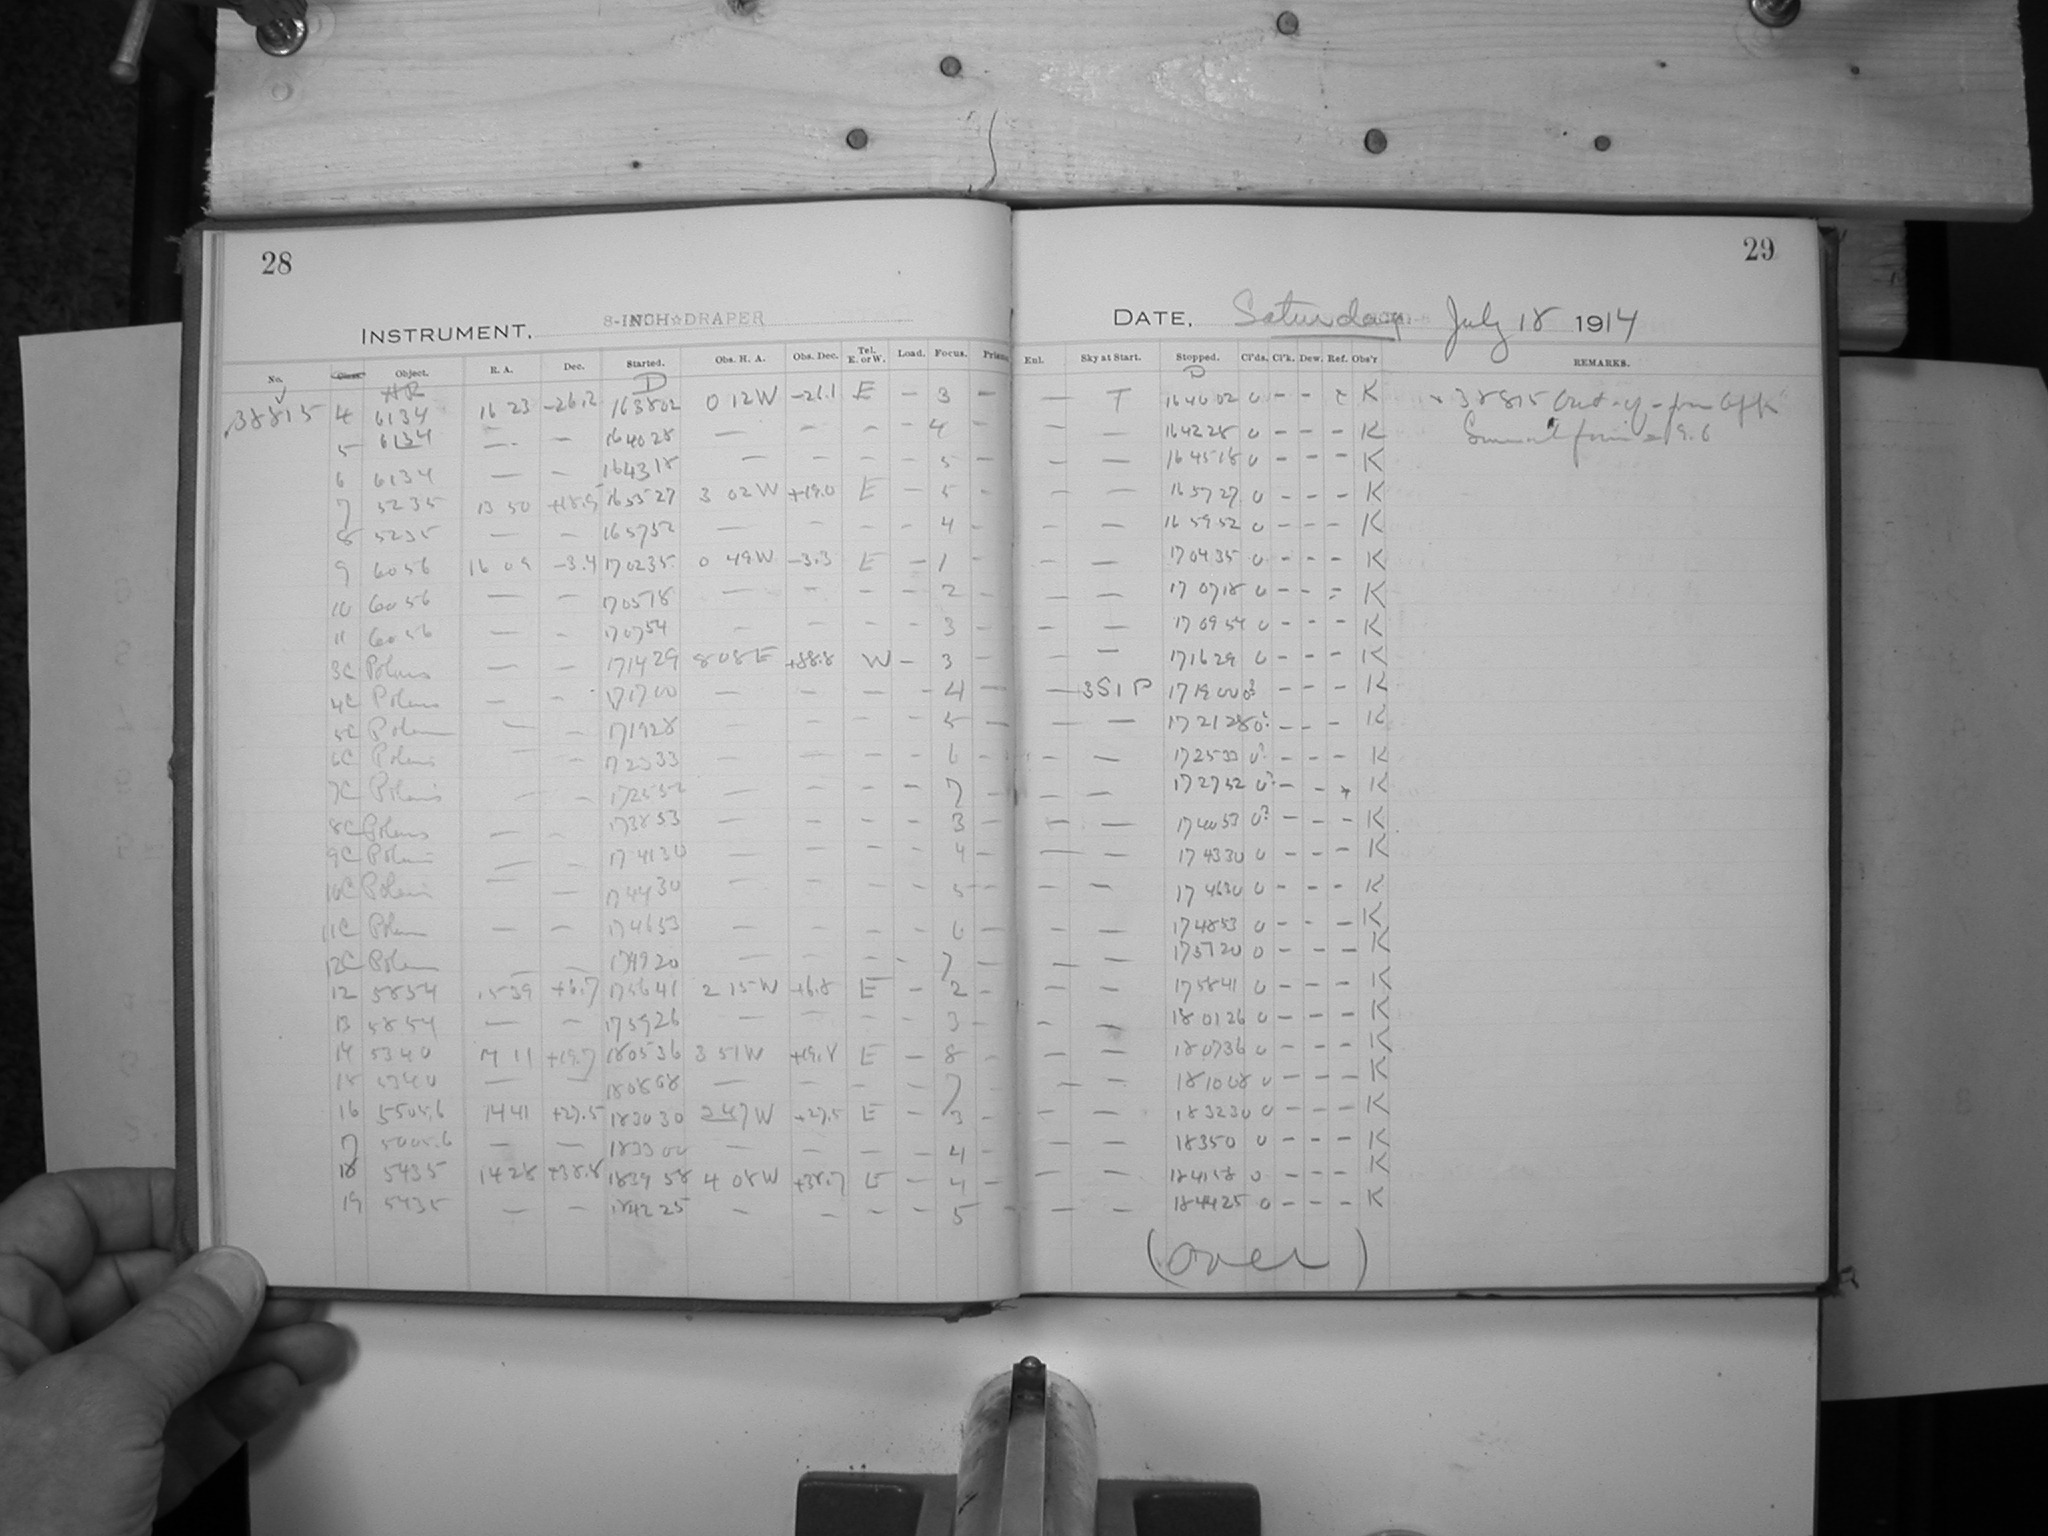 28
29
INSTRUMENT, 8-INCH DRAPER
DATE, Saturday July 18 1914
No. Class Object. R. A. Dec. Started. Obs. H. A. Obs. Dec. Tel. E. or W. Load. Focus. Prisms Enl. Sky at Start. Stopped. Cl'ds. Cl'k. Dew. Ref. Obs'r REMARKS.
HR D D
38815 4 6134 16 23 -26.2 163802 0 12W -26.1 E - 3 - T 164002 0 - - K 38815 Out-of-
5 6134 - - 164028 - - - - 4 - - - 164228 0 - - - K = 9.6
6 6134 - - 164318 - - - - 5 - - - 164518 0 - - - K
7 5235 13 50 +18.9 165527 3 02W +19.0 E - 5 - - - 165727 0 - - - K
8 5235 - - 165752 - - - - 4 - - - 165952 0 - - - K
9 6056 16 09 -3.4 170235 0 49W -3.3 E - 1 - - - 170435 0 - - - K
10 6056 - - 170518 - - - - 2 - - - 170718 0 - - - K
11 6056 - - 170754 - - - - 3 - - - 170954 0 - - - K
3C Polaris - - 171429 808E +88.8 W - 3 - - - 171629 0 - - - K
4C Polaris - - 171700 - - - - 4 - - 3S1P 171900 0? - - - K
5C Polaris - - 171928 - - - - 5 - - - 172128 0? - - - K
6C Polaris - - 172333 - - - - 6 - - - 172533 0? - - - K
7C Polaris - - 172552 - - - - 7 - - - 172752 0? - - K
8C Polaris - - 173853 - - - - 3 - - - 174053 0? - - - K
9C Polaris - - 174130 - - - - 4 - - - 174330 0 - - - K
10C Polaris - - 174430 - - - - 5 - - - 174630 0 - - - K
11C Polaris - - 174653 - - - - 6 - - - 174853 0 - - - K
12C Polaris - - 174920 - - - - 7 - - - 175120 0 - - - K
12 5854 1539 +6.7 175641 2 15W +6.8 E - 2 - - - 175841 0 - - - K
13 5854 - - 175926 - - - - 3 - - - 180126 0 - - - K
14 5340 14 11 +19.7 180536 3 51W +19.8 E - 8 - - - 180736 0 - - - K
15 5340 - - 180808 - - - - 7 - - - 181008 0 - - - K
16 5505,6 1441 +27.5 183030 2 47W +27.5 E - 3 - - - 183230 0 - - - K
17 5505,6 - - 183300 - - - - 4 - - - 18350 0 - - - K
18 5435 1428 +38.8 183958 4 08W +38.7 E - 4 - - - 184158 0 - - - K
19 5435 - - 184225 - - - - 5 - - - 184425 0 - - - K
(over)